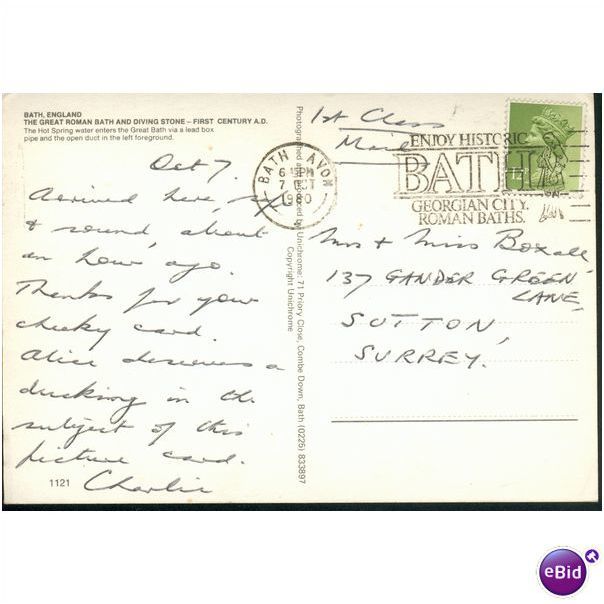 BATH, ENGLAND
THE GREAT ROMAN BATH AND DIVING STONE – FIRST CENTURY A.D.
The Hot Spring water enters the Great Bath via a lead box
pipe and the open duct in the left foreground.
Oct 7.
Arrived here, safe
& sound, about
an hour ago.
Thanks for your
cheeky card.
Alice deserves a
ducking in the
subject of this
picture card.
Charlie
1121
Photographed and produced by Unichrome: 71 Priory Close, Combe Down, Bath (0225) 833897
Copyright Unichrome
1st Class
Mail
BATH AVON
6 PM
7 OCT
1980
ENJOY HISTORIC
BATH
GEORGIAN CITY.
ROMAN BATHS.
12P
Mrs & Miss Boxall,
137 GANDER GREEN
LANE,
SUTTON,
SURREY.
eBid